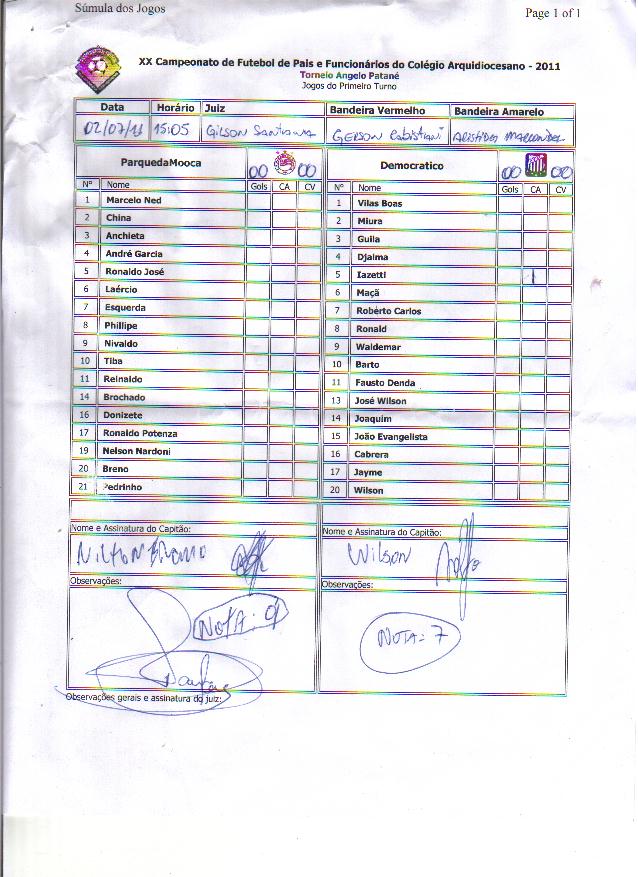 Súmula dos Jogos
Page 1 of 1
XX Campeonato de Futebol de Pais e Funcionários do Colégio Arquidiocesano - 2011
Torneio Angelo Patané
Jogos do Primeiro Turno
Data Horário Juiz Bandeira Vermelho Bandeira Amarelo
02/07/11 15:05 Gilson Santana GERSON
ParquedaMooca 00 00 Democratico 00 00
Nº Nome Gols CA CV Nº Nome Gols CA CV
1 Marcelo Ned 1 Vilas Boas
2 China 2 Miura
3 Anchieta 3 Guila
4 André Garcia 4 Djalma
5 Ronaldo José 5 Iazetti 1
6 Laércio 6 Maçã
7 Esquerda 7 Robérto Carlos
8 Phillipe 8 Ronald
9 Nivaldo 9 Waldemar
10 Tiba 10 Barto
11 Reinaldo 11 Fausto Denda
14 Brochado 13 José Wilson
16 Donizete 14 Joaquim
17 Ronaldo Potenza 15 João Evangelista
19 Nelson Nardoni 16 Cabrera
20 Breno 17 Jayme
21 Pedrinho 20 Wilson
Nome e Assinatura do Capitão: Nome e Assinatura do Capitão:
Wilson
Observações: Observações:
NOTA:
NOTA: 7
Observações gerais e assinatura do juiz: